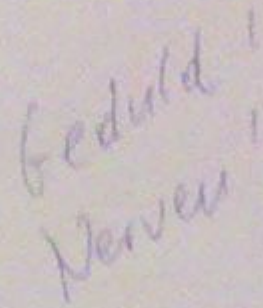 Geduld!
Nerven!